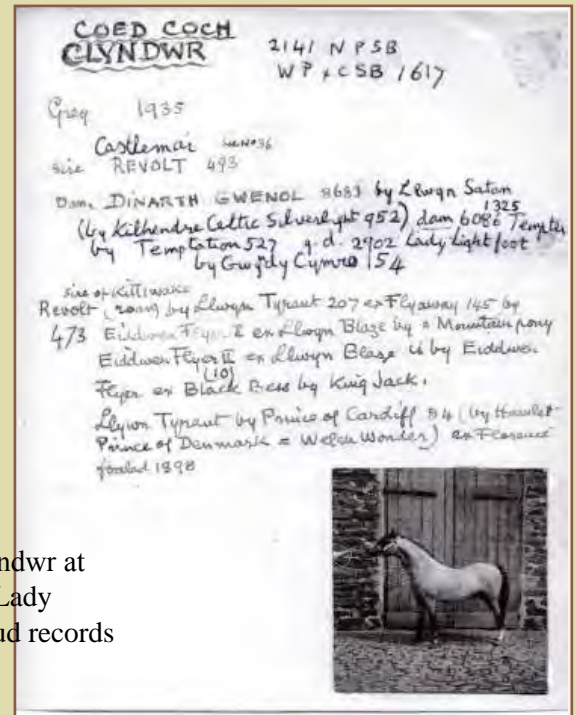 COED COCH
GLYNDWR
2141 NPSB
WP & CSB 1617
Grey 1935
Castlemai
sire REVOLT 493
Dam, DINARTH GWENOL 8683 by Llwyn Satan
1325
(by Kilhendre Celtic Silverlight 952) dam 6086 Tempter
by Temptation 527 g.d. 2902 Lady Lightfoot
by Gwyndy Cymro 154
sire of Kittiwake
Revolt (roan) by Llwyn Tyrant 207 ex Flyaway 145 by
473 Eiddwen Flyer II ex Llwyn Blaze by a Mountain pony
Eiddwen Flyer II ex Llwyn Blaze is by Eiddwen
(10)
Flyer ex Black Bess by King Jack.
Llywn Tyrant by Prince of Cardiff 84 (by Hamlet
Prince of Denmark = Welsh Wonder) ex Florence
foaled 1898
ndwr at
Lady
ud records